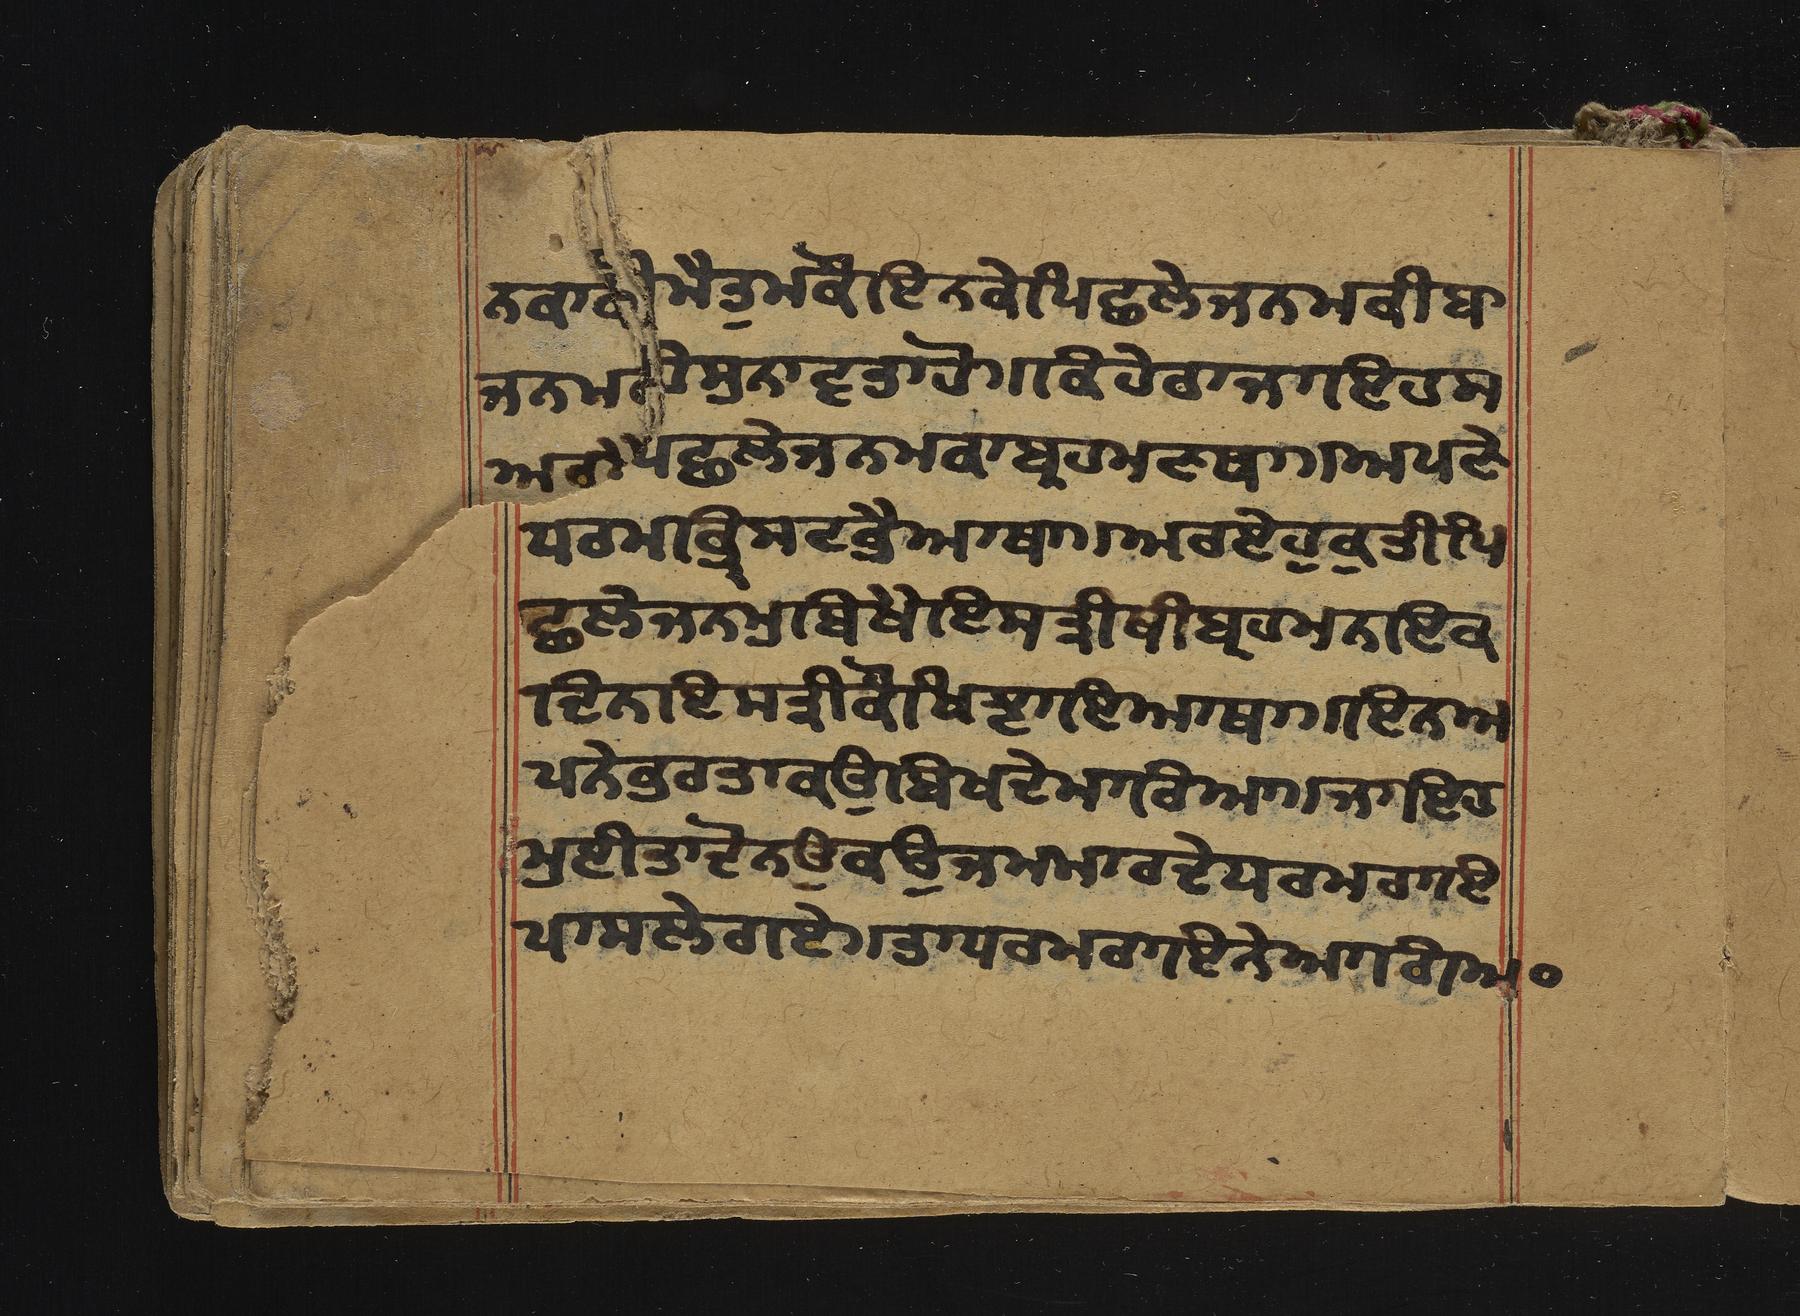 ਨਕਾਕੀ ਮੈਤੁਮਕੌ ਇਨਕੇ ਪਿਛਲੇ ਜਨਮਕੀ ਬਾ
ਜਨਮ ਸੁਨਾਵਤਾ ਹੋ॥ ਕਿ ਹੇ ਰਾਜਾ ਇਹ ਸ
ਅਰ ਪਿਛਲੇ ਜਨਮ ਕਾ ਬ੍ਰਹਮਣ ਥਾ॥ ਅਪਣੇ
ਧਰਮ ਕ੍ਰਿਸਟ ਭੈ ਆ ਥਾ॥ ਅਰ ਏਹੁ ਕੁਤੀ ਪਿ
ਛਲੇ ਜਨਮੁ ਬਿਖੈ ਇਸਤ੍ਰੀ ਥੀ ਬ੍ਰਹਮਨ ਇਕ
ਦਿਨ ਇਸਤ੍ਰੀ ਕੌ ਖਿਝਾਇਆ ਥਾ॥ ਇਨ ਅ
ਪਨੇ ਭੁਰਤਾ ਕਉ ਬਿਖ ਦੇ ਮਾਰਿਆ॥ ਜਾ ਇਹ
ਮੁਈ ਤਾ ਦੋਨਉ ਕਉ ਜਮ ਮਾਰਦੇ ਧਰਮਰਾਇ
ਪਾਸ ਲੇ ਗਏ॥ ਤਾ ਧਰਮਰਾਇ ਨੇ ਆਗਿਅ॰